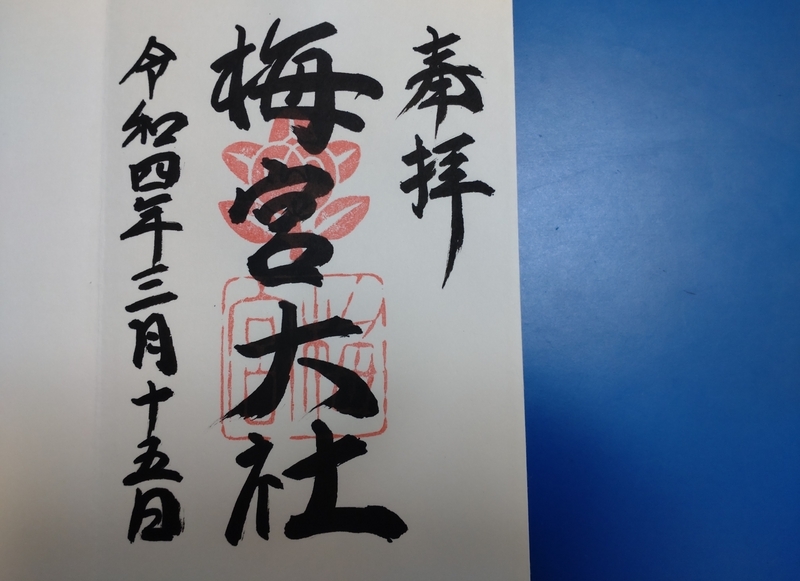 奉拝
梅宮大社
令和四年三月十五日
梅宮